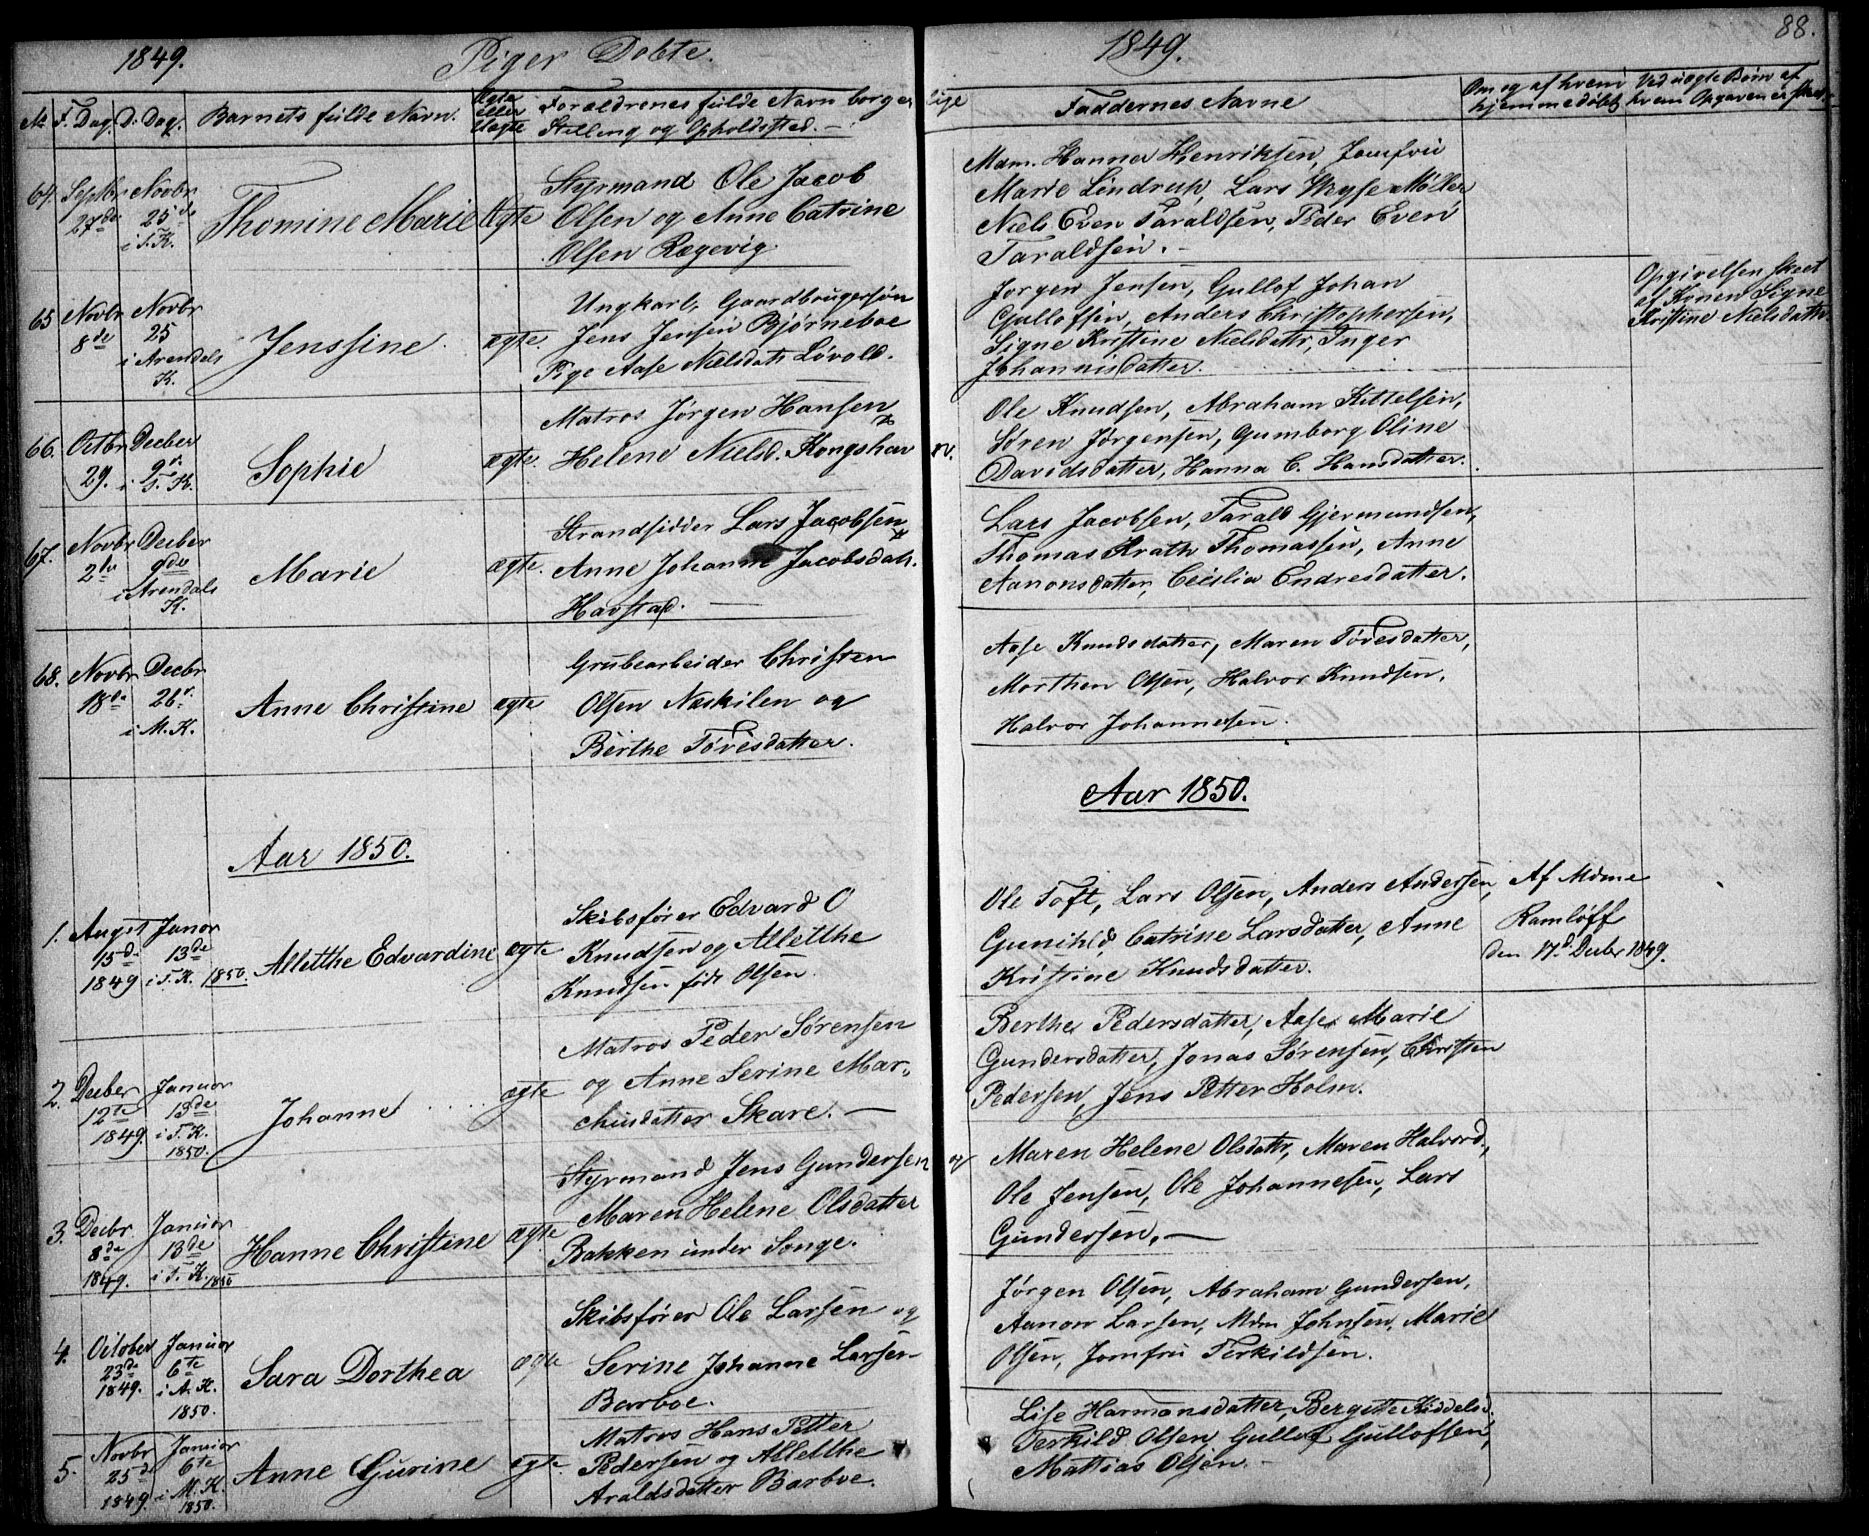 1849.
Piger Døbte.
1849.
88.
№ F. Dag. D. Dag. Barnets fulde Navn. Ægte eller Uægte Forældrenes fulde Navn borgerlige
Stilling og Opholdssted. —
Faddernes Navne
Om og af hvem hjemmedøbt
Ved uægte Børn af hvem Opgaven er skeet.
64. Septbr 27de Novbr 25de i T. K. Thomine Marie Ægte
Styrmand Ole Jacob
Olsen og Anne Catrine
Olsen Rægevig.
Mdm. Hanna Henriksen, Jomfru
Marie Lindrup, Lars Møller
Niels Even Taraldsen, Peder Even
Taraldsen. —
65 Novbr 8de Novbr 25 i Arendals K. Jenssine. ægte.
Ungkarl, Gaardbrugersøn
Jens Jensen Bjørneboe
Pige Aase Nielsdatr Løvold.
Jørgen Jensen, Gullof Johan
Gulloffsen, Anders Christophersen,
Signe Kristine Nielsdattr, Inger
Johannisdatter.
Opgivelsen skeet
af Konen Signe
Kristine Nielsdattr.
66. Octbr 29. Decber 9de i T. K. Sophie ægte.
Matros Jørgen Hansen &
Helene Nielsd. Kongshavn.
Ole Knudsen, Abraham Kittelsen,
Søren Jørgensen, Gumborg Oline
Davidsdatter, Hanna C. Hansdatter.
67. Novbr 2de Decber 9de i Arendals K. Marie ægte.
Strandsidder Lars Jacobsen &
Anne Johanne Jacobsdatr.
Havstad. —
Lars Jacobsen, Tarald Gjermundsen,
Thomas Krath Thomassen, Anne
Aanonsdatter, Cecilia Endresdatter.
68. Novbr 18de Decbr 26de i M. K. Anne Christine ægte
Grubearbeider Christen
Olsen Næskilen og
Berthe Tøvesdatter.
Aase Knudsdatter, Maren Tøvesdatter,
Morthen Olsen, Halvor Knudsen,
Halvor Johannesen.
Aar 1850.
Aar 1850.
1. Augst 15d. 1849 Januar 13de i T. K. 1850. Alletthe Edvardine ægte
Skibsfører Edvard O
Knudsen og Alletthe
Knudsen født Olsen.
Ole Toft, Lars Olsen, Anders Andersen,
Gunihld Catrine Larsdatter, Anne
Kristine Knudsdatter.
Af Mdme
Ramløff
den 17d Decber 1849.
2. Decber 12te 1849. Januar 13de i T. K. 1850. Johanne ægte
Matros Peder Sørensen
og Anne Serine Mar-
chusdatter Skare. —
Berthe Pedersdatter, Aase Marie
Gundersdatter, Jonas Sørensen, Christen
Pedersen, Jens Petter Holm.
3. Decbr 8de 1849. Januar 13de i T. K. 1850 Hanne Christine ægte
Styrmand Jens Gundersen og
Maren Helene Olsdatter
Bakken under Songe.
Maren Helene Olsdattr, Maren Halvord,
Ole Jensen, Ole Johannesen, Lars
Gundersen. —
4. October 23de 1849. Januar 6te i A. K. 1850. Sara Dorthea ægte
Skibsfører Ole Larsen og
Serine Johanne Larsen
Barboe.
Jørgen Olsen, Abraham Gundersen,
Aanon Larsen, Mdm Johnsen, Marie
Olsen, Jomfru Terkildsen.
5. Novbr 25de 1849. Januar 6te i M. K. 1850. Anne Gurine ægte.
Matros Hans Petter
Pedersen og Alletthe
Araldsdatter Barboe.
Lise Harmansdatter, Bergitte Kiddelsd.
Terkild Olsen, Gullof Gulloffsen,
Mattias Olsen. —